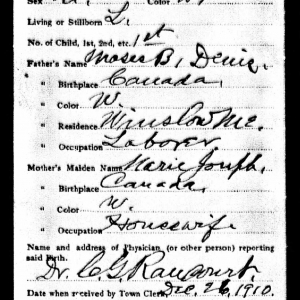 Sex Color
Living or Stillborn L.
No. of Child, 1st, 2nd, etc. 1st
Father's Name Moses B. Denis,
" Birthplace Canada,
" Color W.
" Residence Winslow Me.
" Occupation Laborer
Mother's Maiden Name Marie Joseph,
" Birthplace Canada,
" Color W.
" Occupation Housewife
Name and address of Physician (or other person) reporting
said Birth.
Dr. C. G. Rancourt
Date when received by Town Clerk, Dec. 26, 1910.